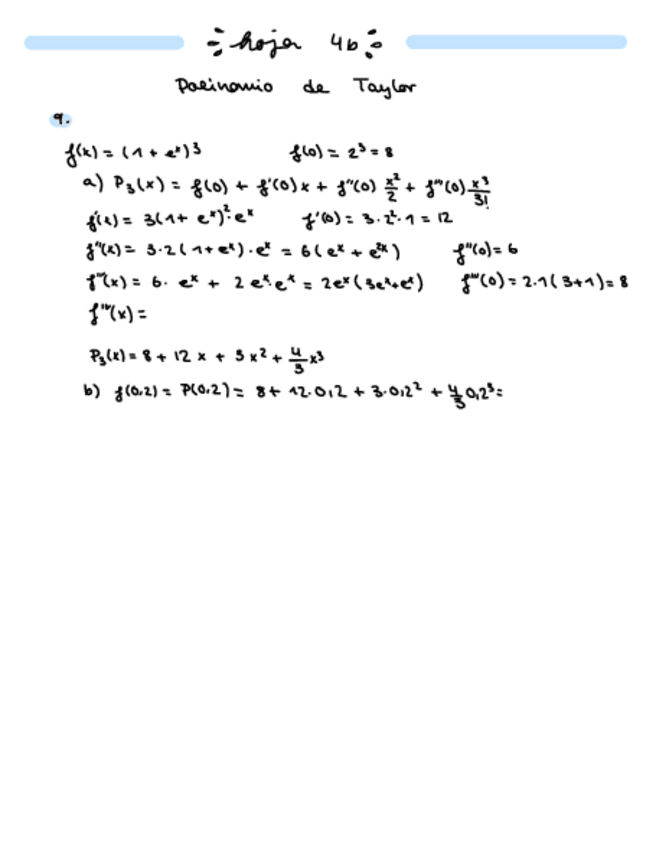 hoja 4b
Polinomio de Taylor
9.
f(x) = (1 + eˣ)³ f(0) = 2³ = 8
a) P₃(x) = f(0) + f'(0)x + f''(0) x²/2 + f'''(0) x³/3!
f'(x) = 3(1 + eˣ)²·eˣ f'(0) = 3·2²·1 = 12
f''(x) = 3·2(1+eˣ)·eˣ = 6(eˣ + e²ˣ) f''(0) = 6
f'''(x) = 6·eˣ + 2eˣ·eˣ = 2eˣ(3eˣ+eˣ) f'''(0) = 2·1(3+1) = 8
f''''(x) =
P₃(x) = 8 + 12x + 3x² + 4/3 x³
b) f(0,2) = P(0,2) = 8 + 12·0,2 + 3·0,2² + 4/3 0,2³ =